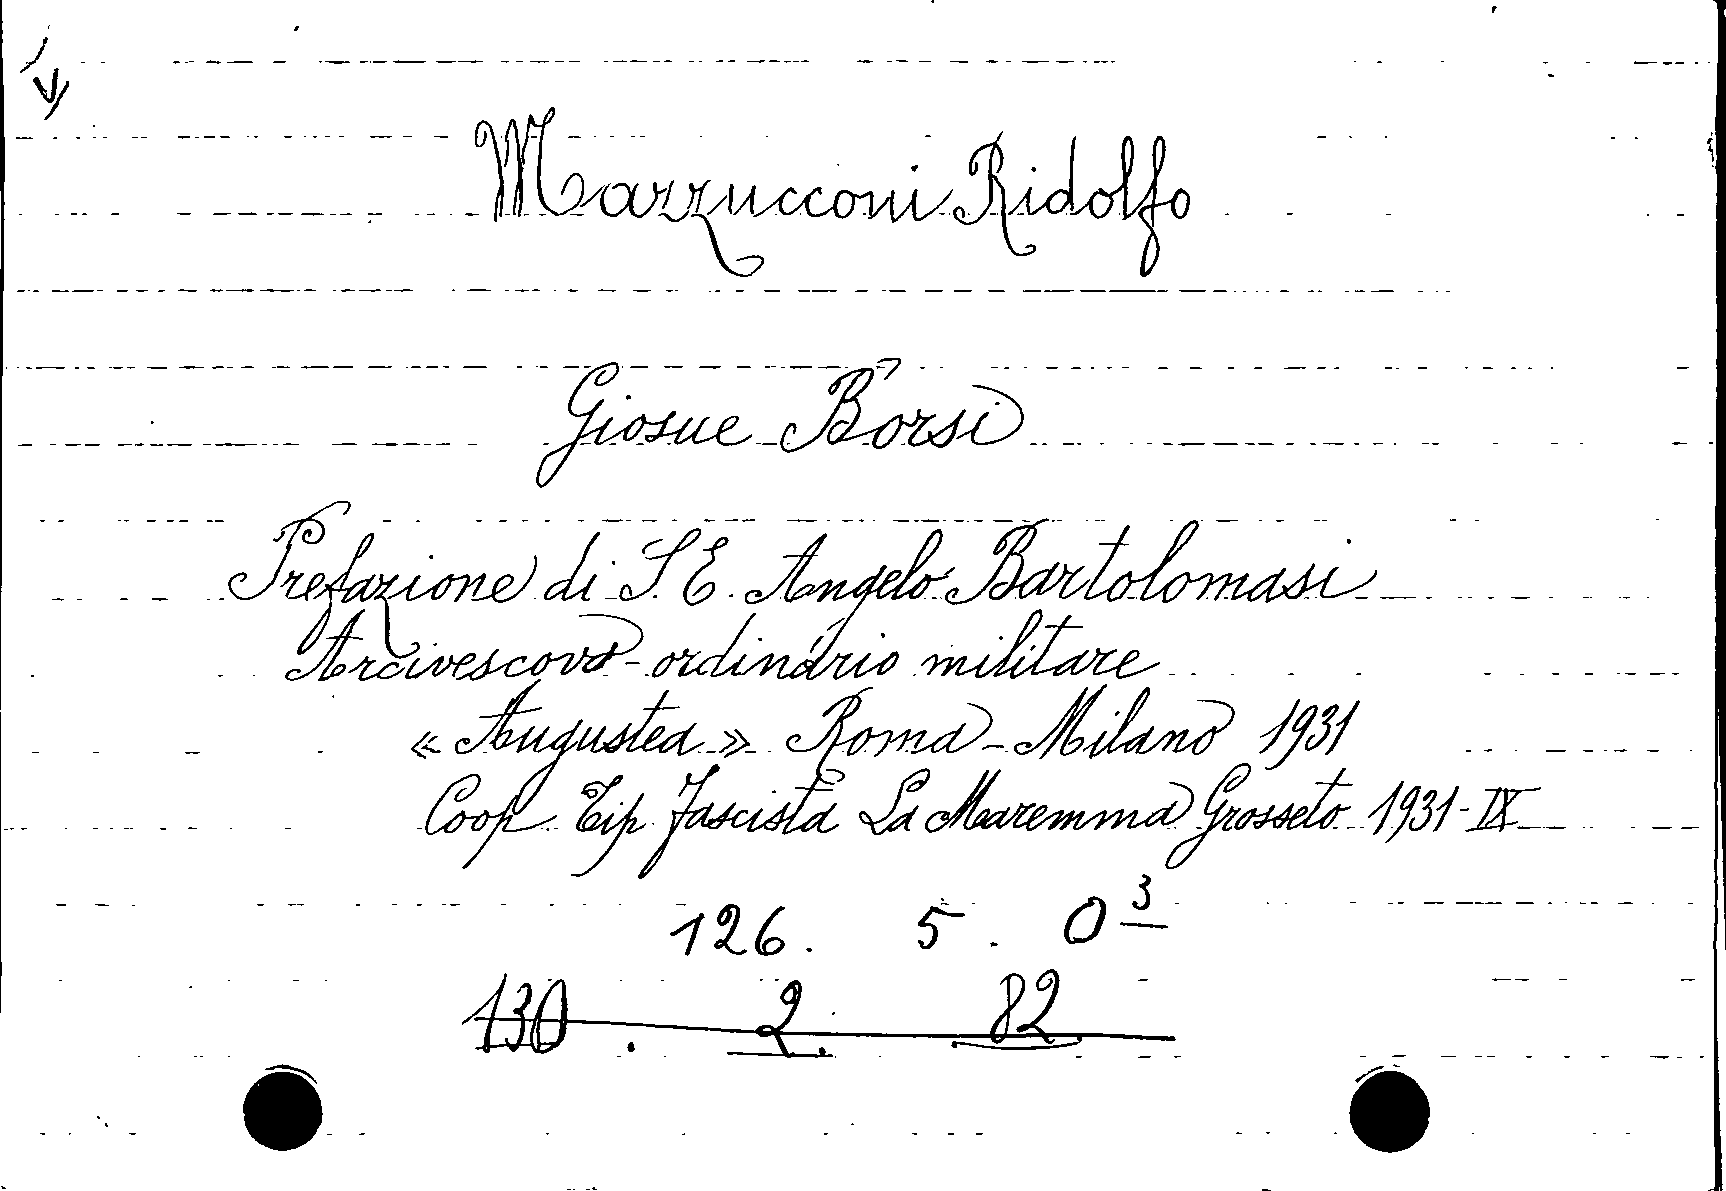 Mazzucconi Ridolfo
Giosue Borsi
Prefazione di S. E. Angelo Bartolomasi
Arcivescovo-ordinario militare
« Augustea » Roma-Milano 1931
Coop. Tip. Fascista La Maremma Grosseto 1931-IX
126. 5. 0 3
130. 2. 82